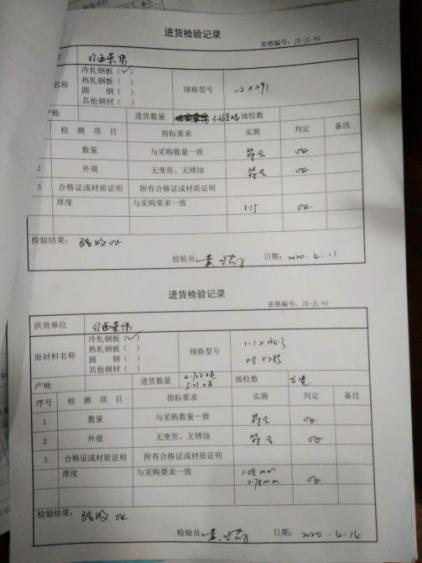 进货检验记录
表格编号：JX-JL-01
名称
冷轧钢板（✓）
热轧钢板（ ）
圆 钢（ ）
其他钢材（ ）
规格型号
1.2×291
产地
进货数量
抽检数
检 测 项 目
指标要求
实测
判定
备注
数量
与采购数量一致
符合
ok
2
外观
无变形、无锈蚀
符合
ok
3
合格证或材质证明
附有合格证或材质证明
厚度
与采购要求一致
1.15
ok
检验结果：
验收 ok
检验员
日期：
2020.4.11
进货检验记录
表格编号：JX-JL-01
供货单位
原材料名称
冷轧钢板（✓）
热轧钢板（ ）
圆 钢（ ）
其他钢材（ ）
规格型号
产地
进货数量
抽检数
序号
检 测 项 目
指标要求
实测
判定
备注
1
数量
与采购数量一致
符合
ok
2
外观
无变形、无锈蚀
符合
ok
3
合格证或材质证明
附有合格证或材质证明
厚度
与采购要求一致
1.08mm
0.78mm
ok
检验结果：
验收 ok
检验员
日期：
2020.4.14